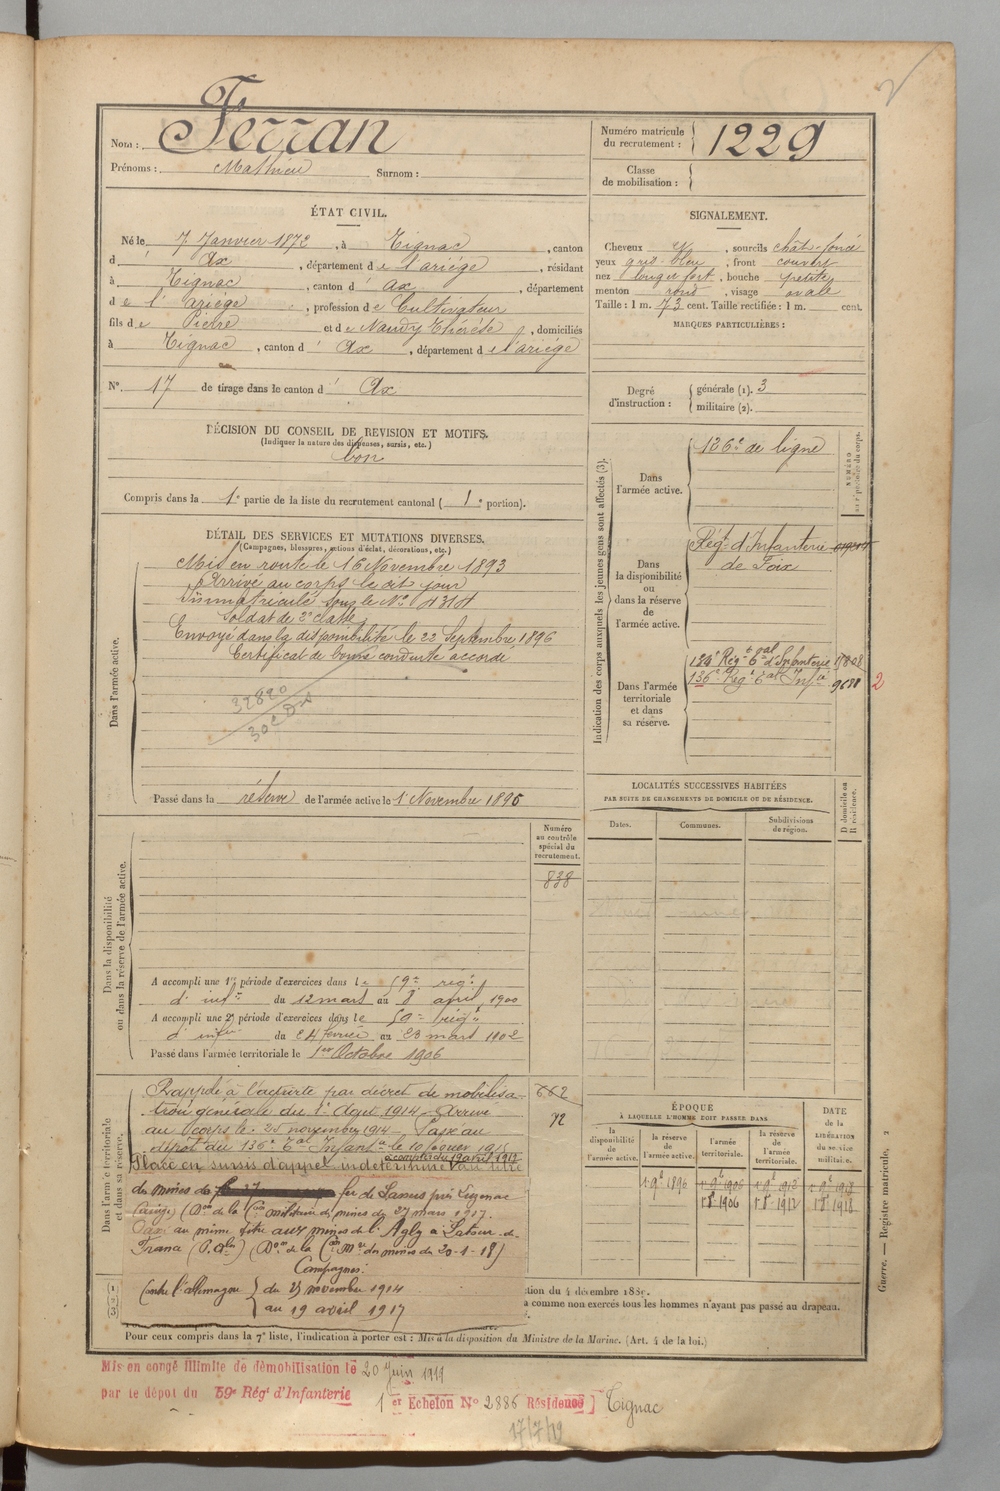 2
Nom : Ferran
Prénoms : Mathieu Surnom :
Numéro matricule du recrutement : 1229
Classe de mobilisation :
ÉTAT CIVIL.
Né le 7 Janvier 1872, à Tignac, canton
d' Ax, département de l'ariége, résidant
à Tignac, canton d' ax, département
de l'ariége, profession de Cultivateur
fils de Pierre et de Naudy Thérèse, domiciliés
à Tignac, canton d' Ax, département de l'ariége
N° 17 de tirage dans le canton d' Ax
SIGNALEMENT.
Cheveux , sourcils chât-foncé
yeux gris-bleu, front couvert
nez long et fort, bouche petite
menton rond, visage ovale
Taille : 1 m. 73 cent. Taille rectifiée : 1 m. cent.
MARQUES PARTICULIÈRES :
Degré d'instruction : générale (1). 3
militaire (2).
DÉCISION DU CONSEIL DE REVISION ET MOTIFS.
(Indiquer la nature des dispenses, sursis, etc.)
bon
Compris dans la 1e partie de la liste du recrutement cantonal ( 1e portion).
DÉTAIL DES SERVICES ET MUTATIONS DIVERSES.
(Campagnes, blessures, actions d'éclat, décorations, etc.)
Dans l'armée active.
Mis en route le 16 Novembre 1893
Arrivé au corps le dit jour
Immatriculé sous le N°
Soldat de 2e classe
Envoyé dans la disponibilité le 22 Septembre 1896
Certificat de bonne conduite accordé
32890
Passé dans la réserve de l'armée active le 1 Novembre 1896
Indication des corps auxquels les jeunes gens sont affectés (3).
Dans l'armée active.
126e de ligne
NUMÉRO
Dans la disponibilité ou dans la réserve de l'armée active.
Régt d'Infanterie
de Foix
Dans l'armée territoriale et dans sa réserve.
Régt tal d'Infanterie
136e Régt tal Infie
2
LOCALITÉS SUCCESSIVES HABITÉES
PAR SUITE DE CHANGEMENTS DE DOMICILE OU DE RÉSIDENCE.
Dates.
Communes.
Subdivisions de région.
D domicile ou R résidence.
Dans la disponibilité ou dans la réserve de l'armée active.
Numéro au contrôle spécial du recrutement.
838
A accompli une 1re période d'exercices dans le 59e régt
d'infie du 12 mars au 8 avril 1900
A accompli une 2e période d'exercices dans le régt
d'infie du 24 février au 23 mars 1902
Passé dans l'armée territoriale le 1er Octobre 1906
Dans l'armée territoriale et dans sa réserve.
Rappelé à l'activité par décret de mobilisa-
tion générale du 1er Aout 1914 - Arrivé
au corps le 25 novembre 1914 - Passé au
dépôt du 136e tal Infant
à compter du 19 avril 1917
Placé en sursis d'appel indéterminé au titre
des mines de fer de Lassus près Luzenac
(Ariège) (Don de la Con militaire des mines du 27 mars 1917.
au même titre aux mines de l'Agly à Latour-de-
(Don de la Con Mre des mines du 20-1-18)
Campagnes :
Contre l'allemagne du 25 novembre 1914
au 19 avril 1917
662
72
ÉPOQUE
À LAQUELLE L'HOMME DOIT PASSER DANS
la disponibilité de l'armée active.
la réserve de l'armée active.
l'armée territoriale.
la réserve de l'armée territoriale.
DATE de la LIBÉRATION du service militaire.
1 9e 1896
1 9e 1906
1 9e 1912
1 9e 1918
1 8e 1906
1 8e 1912
1 8e 1918
Guerre. — Registre matricule, 2
(1)
(2)
(3)
ction du 4 décembre 1889.
a comme non exercés tous les hommes n'ayant pas passé au drapeau.
Pour ceux compris dans la 7e liste, l'indication à porter est : Mis à la disposition du Ministre de la Marine. (Art. 4 de la loi.)
Mis en congé illimité de démobilisation le 20 Juin 1919
par le dépôt du 59e Régt d'Infanterie
1er Echelon N° 2886 Résidence ] Tignac
17/7/19